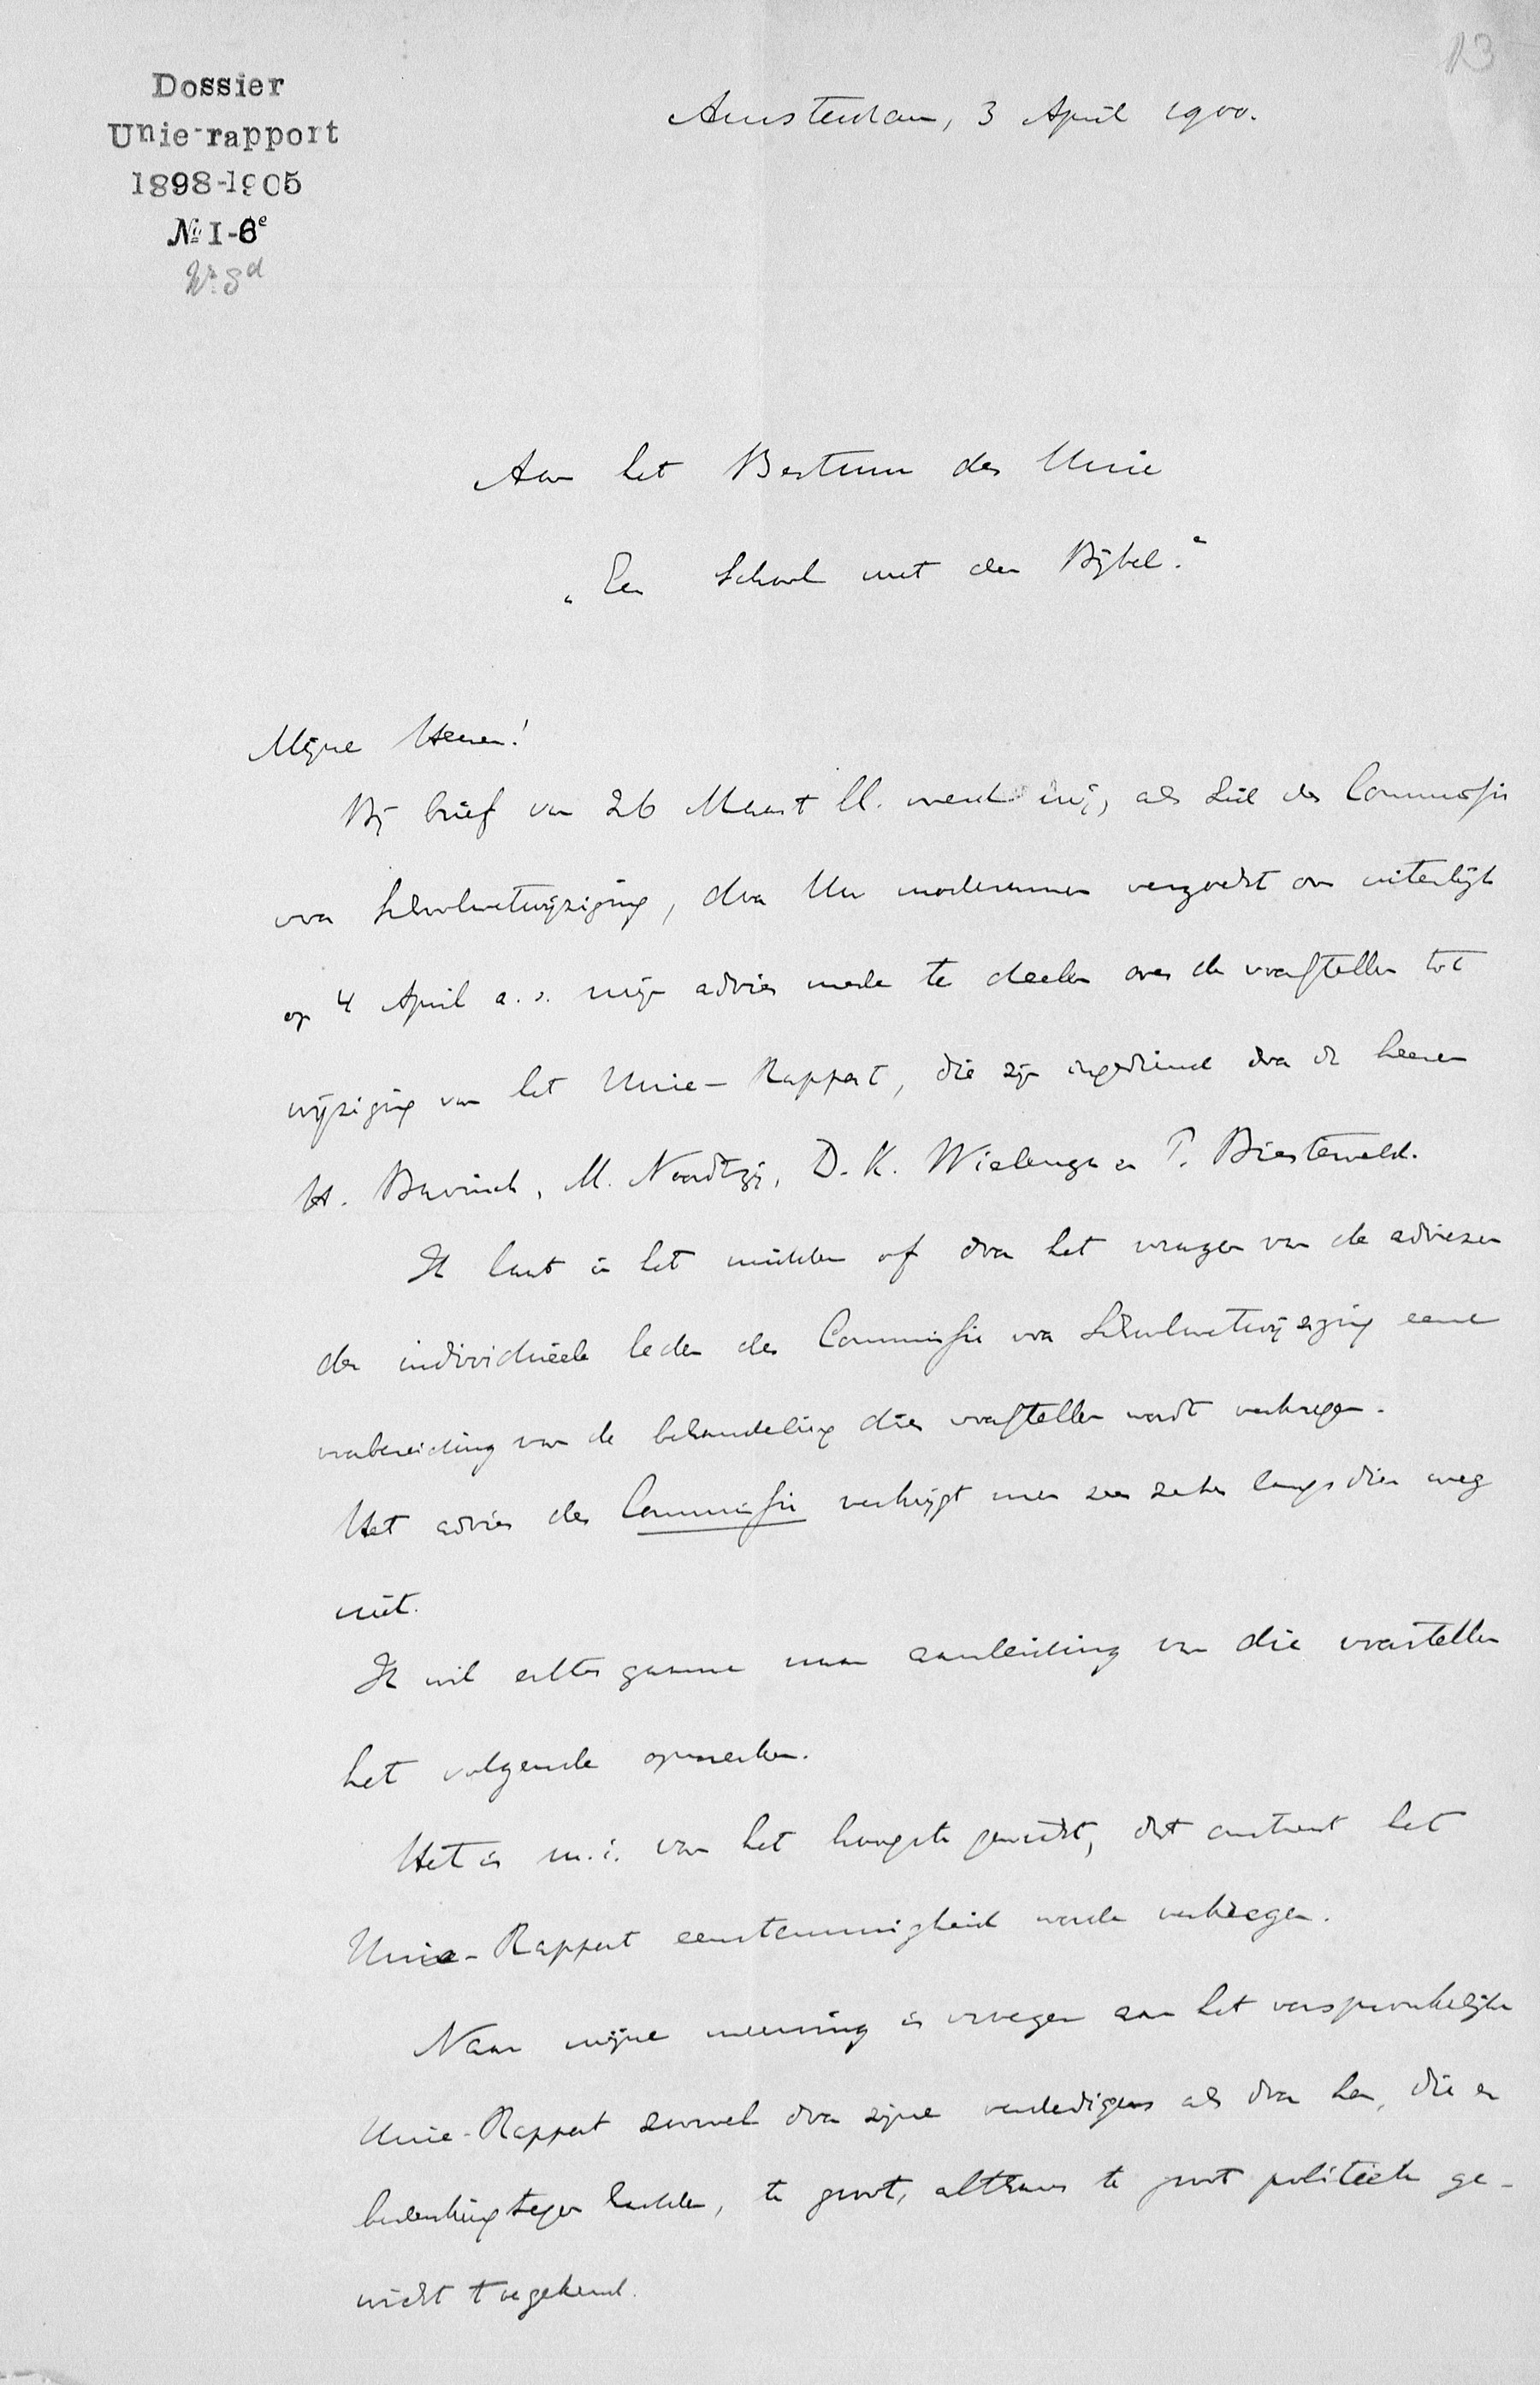 13
Dossier
Unie-rapport
1898-1905
No I-6e
Nr. 8d
Amsterdam, 3 April 1900.
Aan het Bestuur der Unie
„Een School met den Bijbel."
Mijne Heeren!
Bij brief van 26 Maart ll. werd mij, als Lid der Commissie
voor Schoolwetwijziging, door Uw moderamen verzocht om uiterlijk
op 4 April a.s. mijn advies mede te deelen over de voorstellen tot
wijziging van het Unie-Rapport, die zijn ingediend door de heeren
H. Bavinck, M. Noordtzij, D. K. Wielenga en P. Biesterveld.
Ik laat in het midden of door het vragen van de adviezen
der individueele leden der Commissie voor Schoolwetwijziging eene
voorbereiding van de behandeling dier voorstellen wordt verkregen.
Het advies der Commissie verkrijgt men zeer zeker langs dien weg
niet.
Ik wil echter gaarne naar aanleiding van die voorstellen
het volgende opmerken.
Het is m.i. van het hoogste gewicht, dat omtrent het
Unie-Rapport eenstemmigheid worde verkregen.
Naar mijne meening is vroeger aan het oorspronkelijke
Unie-Rapport zoowel door zijne verdedigers als door hen, die er
bedenking tegen hadden, te groot, althans te groot politiek ge-
wicht toegekend.